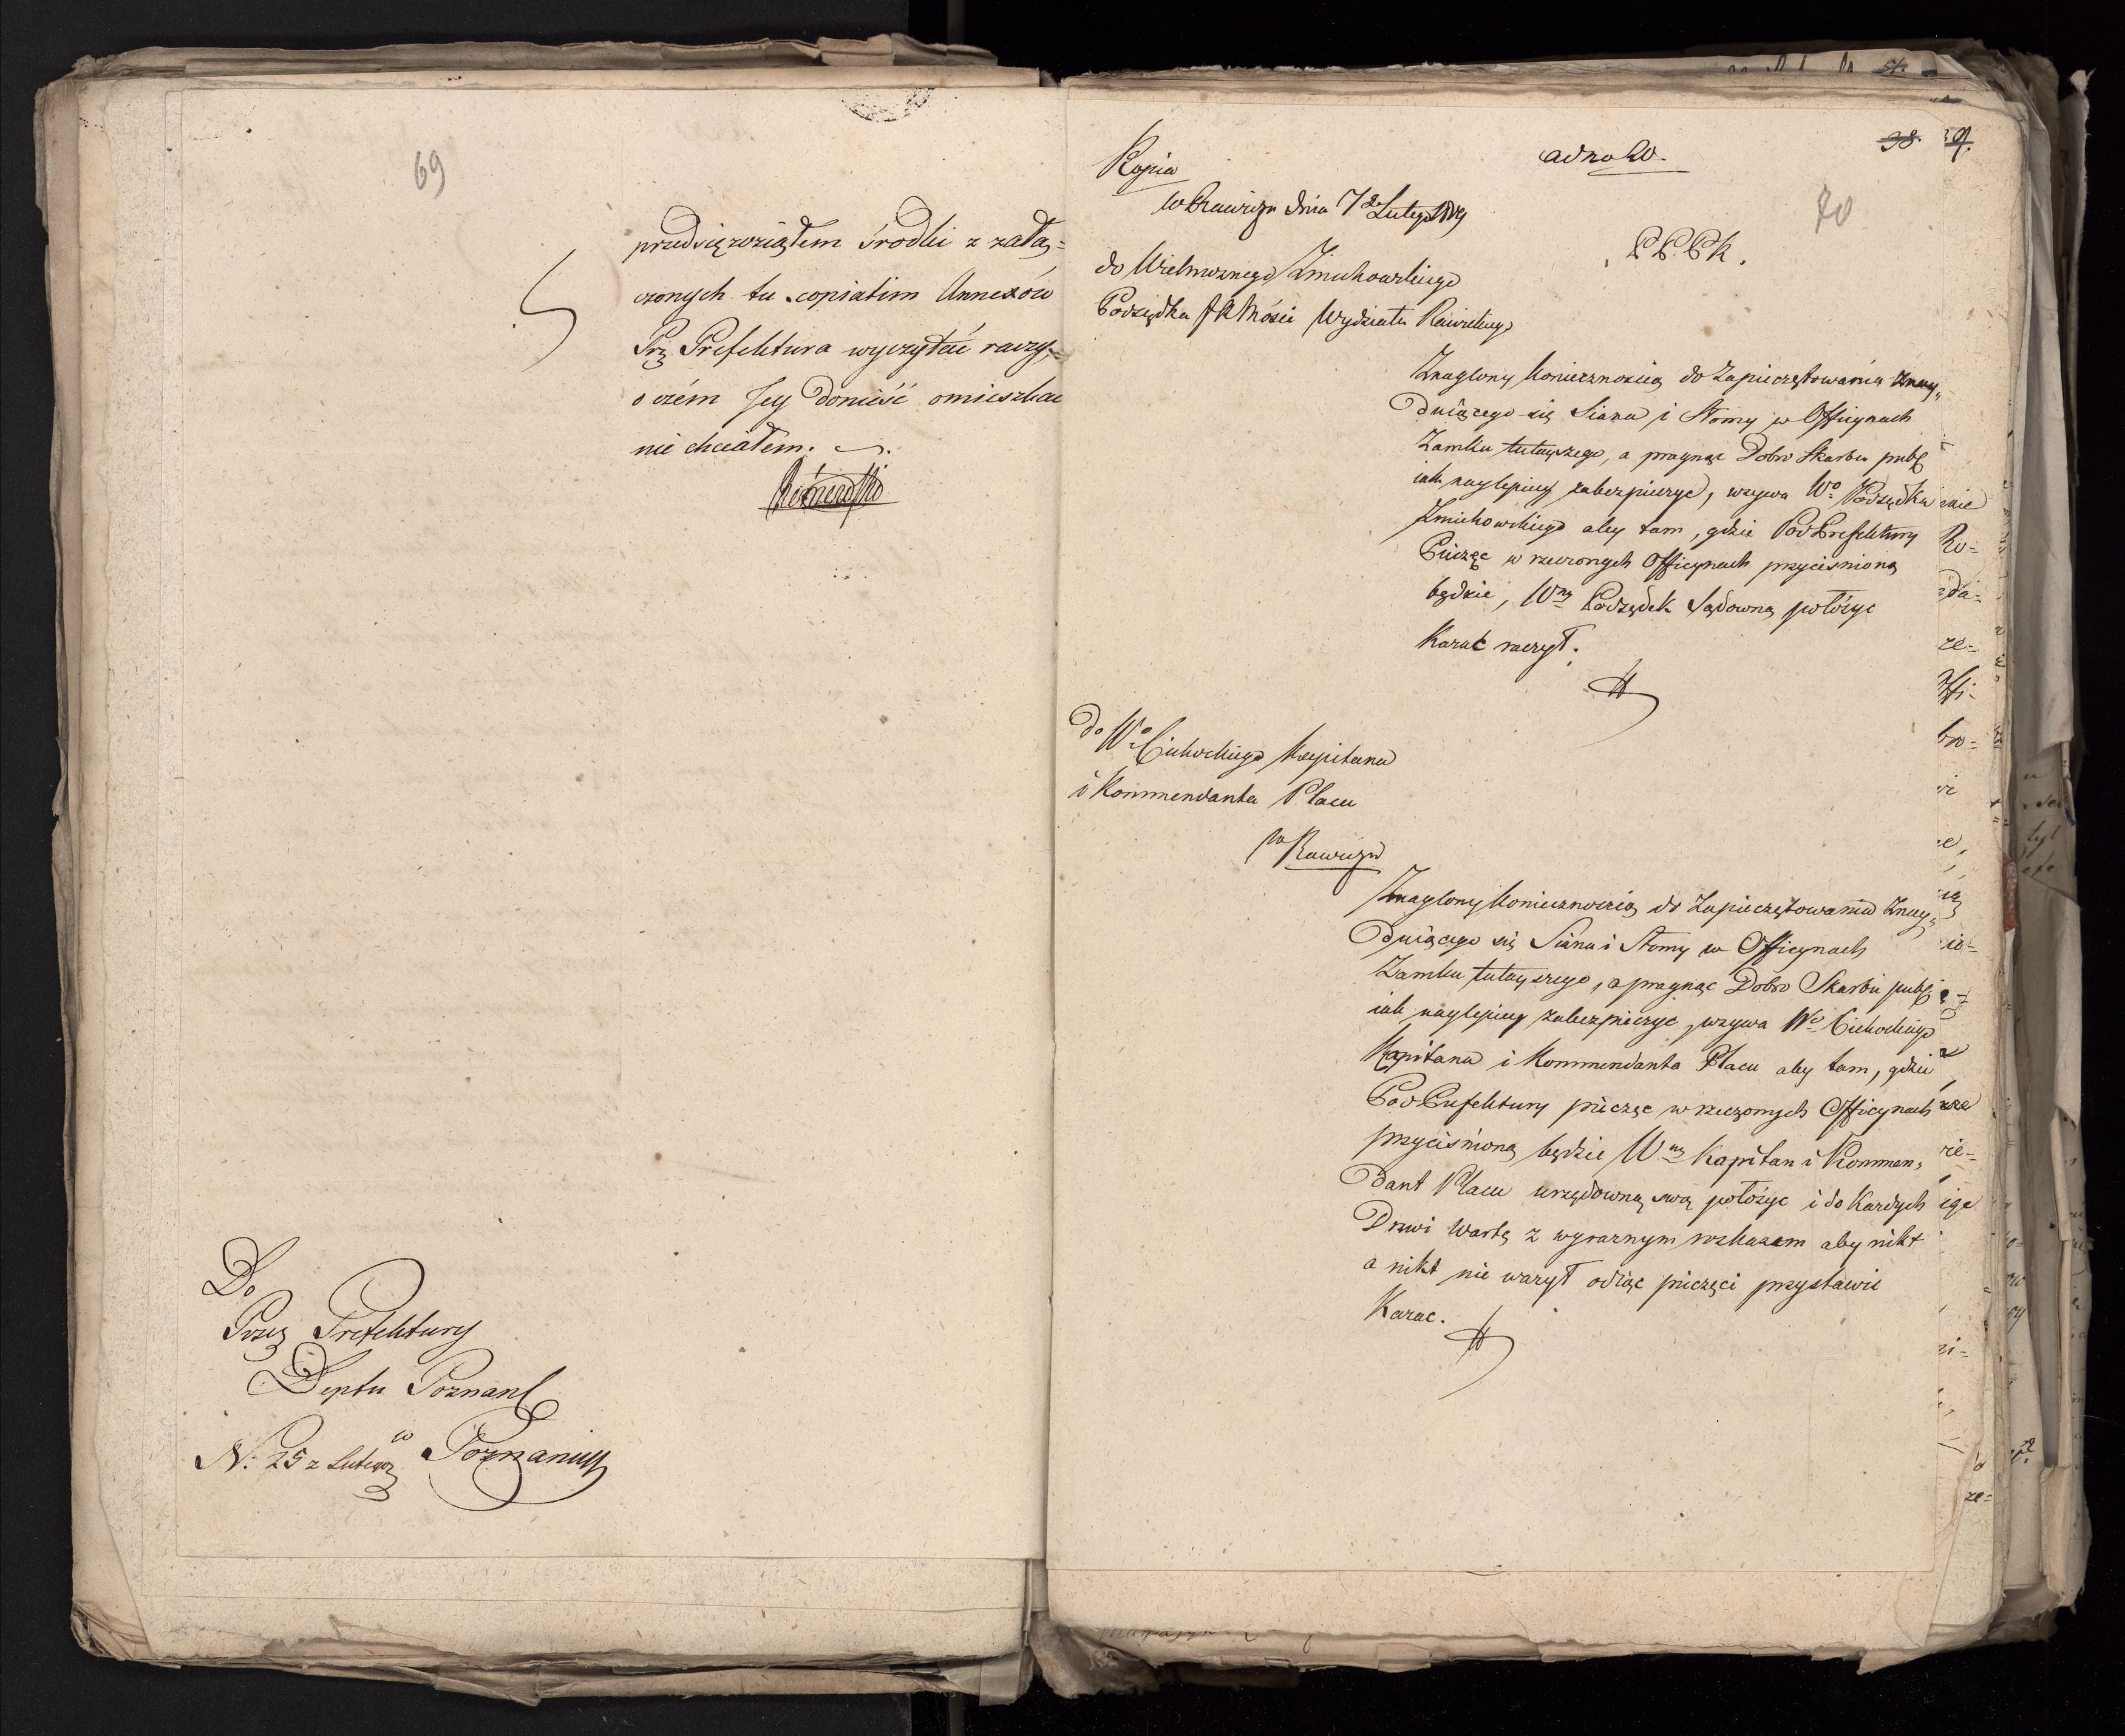 69
przedsięwziąłem środki z załą=
czonych tu copiatim Annexów
Prz. Prefektura wyczytać raczy,=
o czém Jey donieść omieszkać
nie chciałem.
Do
Prz. Prefektury
Deptu Poznansk
w Poznaniu
N: 25 z Lutego
38.
70
Kopia
w Rawiczu dnia 7 Lutego
P.P.P.R.
do Wielmożnego Zmichowskiego
Podsędka Wydziału Rawickiego
Znaglony koniecznością do Zapieczętowania Znay„
duiącego się Siana i Słomy w Officynach
Zamku tutayszego, a pragnąc Dobro Skarbu publ
iak naylepiey zabezpieczyć, wzywa Wo Podsędka
Zmichowskiego aby tam, gdzie PodPrefektury
Pieczęć w rzeczonych Officynach przyciśnioną
będzie, Wny Podsędek Sądowną położyć
Kazać raczył.
Do Wo Cichockiego Kapitana
i Kommendanta Placu
w Rawiczu
Znaglony Koniecznością do Zapieczętowania Znay„
duiącego się Siana i Słomy w Officynach
Zamku tutayszego, a pragnąc Dobro Skarbu publ
iak naylepiey zabezpieczyć, wzywa Wo Cichockiego
Kapitana i Kommendanta Placu aby tam, gdzie
PodPrefektury pieczęć w rzeczonych Officynach
przyciśnioną będzie Wny Kapitan i Kommen„
dant Placu urzędowną swą położyć i do Każdych
Drzwi Wartę z wyraznym rozkazem aby nikt
a nikt nie ważył odiąć pieczęci przystawić
Kazać.